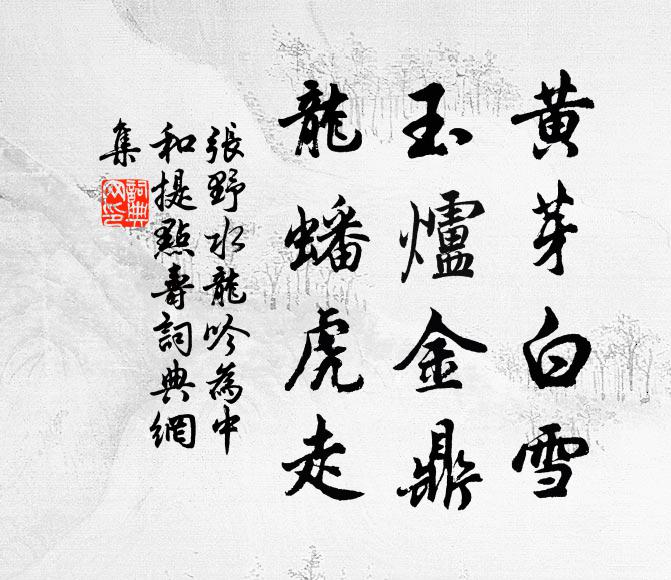 黄芽白雪
玉爐金鼎
龍蟠虎走
張野水龍吟為中
和提點壽詞典網
集
詞典网印